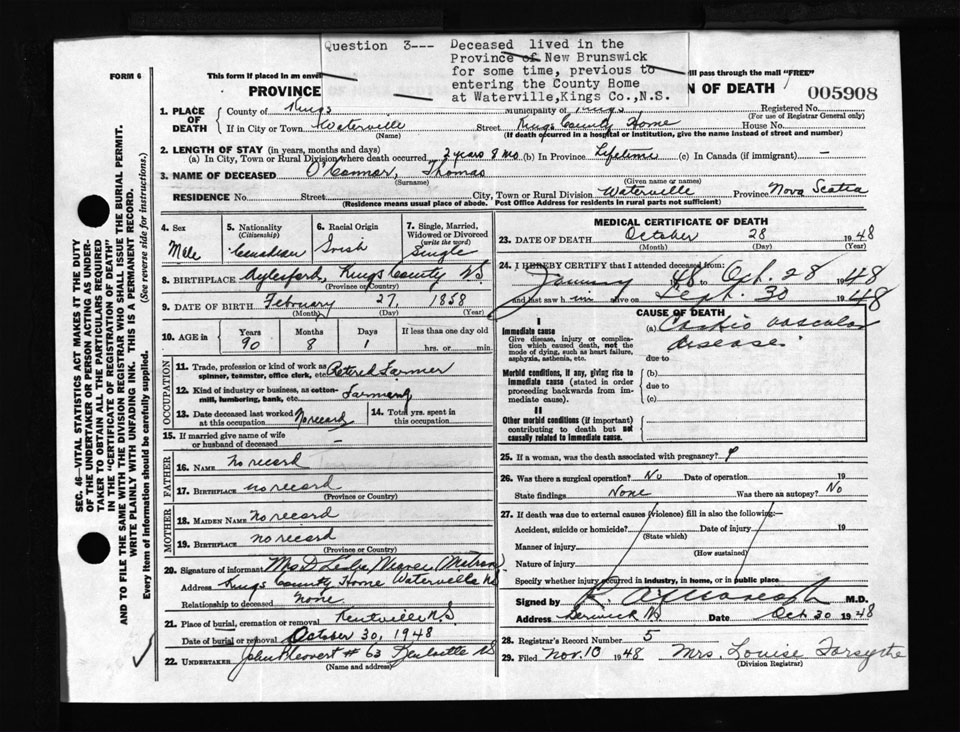 Question 3--- Deceased lived in the
Province of New Brunswick
for some time, previous to
entering the County Home
at Waterville,Kings Co.,N.S.
FORM 6
This form if placed in an envel
will pass through the mail "FREE"
PROVINCE
N OF DEATH
005908
1. PLACE OF DEATH
County of Kings
Municipality of Kings
Registered No.
(For use of Registrar General only)
If in City or Town Waterville
(Name)
Street Kings County Home
House No.
(If death occurred in a hospital or institution, give the name instead of street and number)
2. LENGTH OF STAY (in years, months and days)
(a) In City, Town or Rural Division where death occurred 3 years 8 mo (b) In Province Lifetime (c) In Canada (if immigrant) —
3. NAME OF DECEASED O'Connor, Thomas
(Surname) (Given name or names)
RESIDENCE No. Street City, Town or Rural Division Waterville Province Nova Scotia
(Residence means usual place of abode. Post Office Address for residents in rural parts not sufficient)
4. Sex
Male
5. Nationality
(Citizenship)
Canadian
6. Racial Origin
Irish
7. Single, Married,
Widowed or Divorced
(write the word)
Single
8. BIRTHPLACE Aylesford, Kings County NS
(Province or Country)
9. DATE OF BIRTH February 27, 1858
(Month) (Day) (Year)
10. AGE in
Years Months Days If less than one day old
90 8 1 hrs. or min.
OCCUPATION
11. Trade, profession or kind of work as
spinner, teamster, office clerk, etc. Retired Farmer
12. Kind of industry or business, as cotton-
mill, lumbering, bank, etc. Farming
13. Date deceased last worked
at this occupation No record
14. Total yrs. spent in
this occupation
15. If married give name of wife
or husband of deceased —
FATHER
16. NAME no record
17. BIRTHPLACE no record
(Province or Country)
MOTHER
18. MAIDEN NAME no record
19. BIRTHPLACE no record
(Province or Country)
20. Signature of informant Mrs D. (Matron)
Address Kings County Home Waterville NS
Relationship to deceased none
21. Place of burial, cremation or removal Kentville N.S
Date of burial or removal October 30, 1948
22. UNDERTAKER John # 63 NS
(Name and address)
MEDICAL CERTIFICATE OF DEATH
23. DATE OF DEATH October 28 1948
(Month) (Day) (Year)
24. I HEREBY CERTIFY that I attended deceased from:
January 48 to Oct. 28 1948
and last saw him alive on Sept. 30 1948
CAUSE OF DEATH
I
Immediate cause
Give disease, injury or complica-
tion which caused death, not the
mode of dying, such as heart failure,
asphyxia, asthenia, etc.
(a) Cardio vascular
disease
due to
Morbid conditions, if any, giving rise to
immediate cause (stated in order
proceeding backwards from im-
mediate cause).
(b)
due to
(c)
II
Other morbid conditions (if important)
contributing to death but not
causally related to immediate cause.
25. If a woman, was the death associated with pregnancy?
26. Was there a surgical operation? No Date of operation 19
State findings None Was there an autopsy? No
27. If death due to external causes (violence) fill in also the following:—
Accident, suicide or homicide? Date of injury 19
(State which)
Manner of injury
(How sustained)
Nature of injury
Specify whether injury occurred in industry, in home, or in public place
Signed by M.D.
Address Berwick NS Date Oct 30 1948
28. Registrar's Record Number 5
29. Filed Nov. 10 1948 Mrs. Louise Forsythe
(Division Registrar)
SEC. 46—VITAL STATISTICS ACT MAKES IT THE DUTY
OF THE UNDERTAKER OR PERSON ACTING AS UNDER-
TAKER TO OBTAIN ALL THE PARTICULARS REQUIRED
IN THE "CERTIFICATE OF REGISTRATION OF DEATH"
AND TO FILE THE SAME WITH THE DIVISION REGISTRAR WHO SHALL ISSUE THE BURIAL PERMIT.
WRITE PLAINLY WITH UNFADING INK. THIS IS A PERMANENT RECORD.
Every item of information should be carefully supplied. (See reverse side for instructions.)